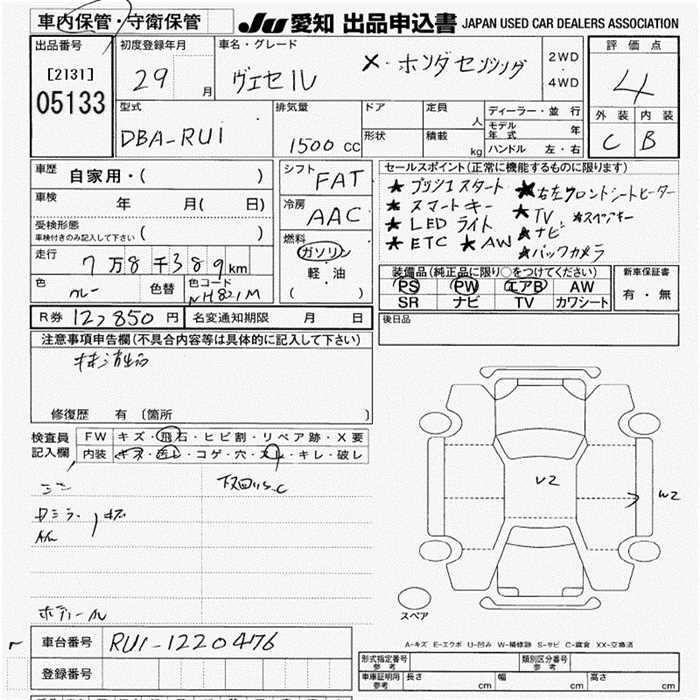 車内保管・守衛保管 JU 愛知 出品申込書 JAPAN USED CAR DEALERS ASSOCIATION
出品番号 [2131] 05133
初度登録年月 29 月
車名・グレード ヴェゼル X・ホンダセンシング
2WD ・ 4WD
評価点 4
外装 C 内装 B
型式 DBA-RU1
排気量 1500 cc
ドア
形状
定員 人
積載 kg
ディーラー・並行
モデル年式 年
ハンドル 左・右
車歴 自家用・( )
車検 年 月( 日)
受検形態 車検付きのみ記入して下さい ( )
走行 7万8千389km
色 グレー 色替 色コード NH821M
シフト FAT
冷房 AAC
燃料 ガソリン 軽油 ( )
セールスポイント(正常に機能するものに限ります)
★プッシュスタート ★右左フロントシートヒーター
★スマートキー ★TV ★スペアキー
★LEDライト ★ナビ
★ETC ★AW ★バックカメラ
装備品(純正品に限り○をつけてください)
PS PW エアB AW
SR ナビ TV カワシート
新車保証書 有・無
R券 12,850円 名変通知期限 月 日
後日品
注意事項申告欄(不具合内容等は具体的に記入して下さい)
修復歴 有 〔箇所 〕
検査員記入欄
FW キズ・飛石・ヒビ割・リペア跡・X要
内装 キズ・汚レ・コゲ・穴・スレ・キレ・破レ
下回りS.C
V2
W2
スペア
A-キズ E-エクボ U-凹み W-補修跡 S-サビ C-腐食 XX-交換済
車台番号 RU1-1220476
登録番号
形式指定番号 参考
類別区分番号 参考
車庫証明用 参考 長さ cm 幅 cm 高さ cm